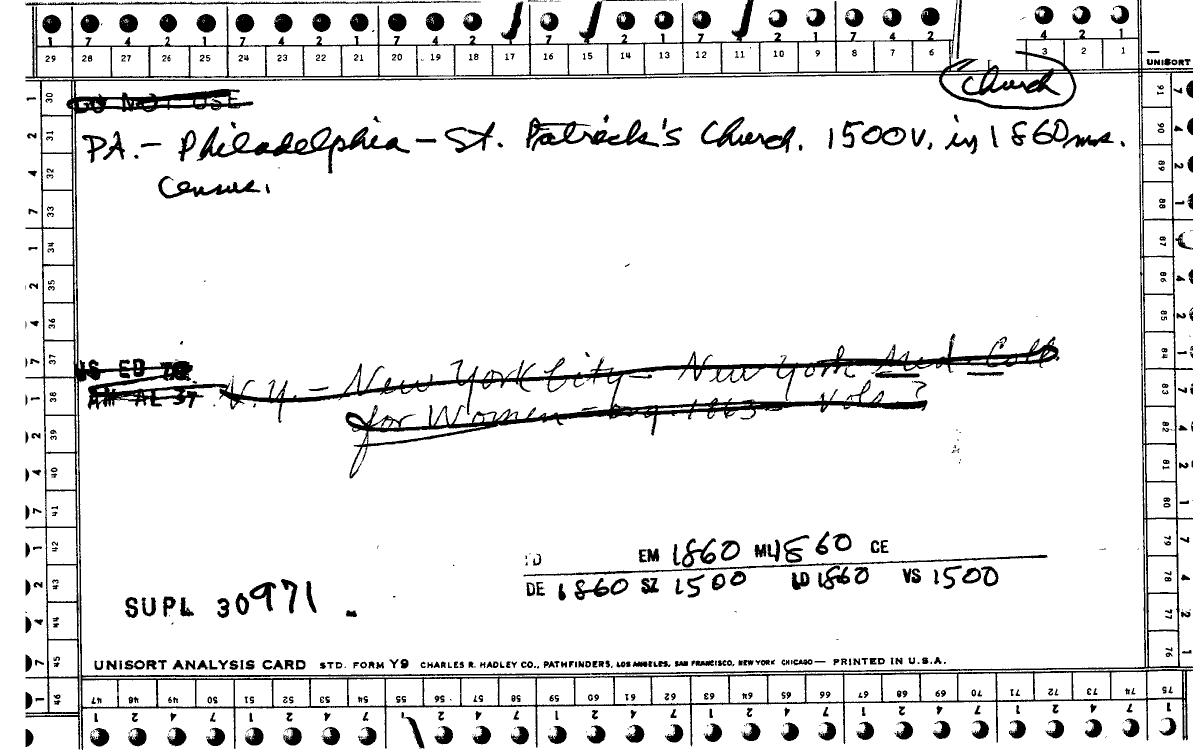 1 7 4 2 1 7 4 2 1 7 4 2 1 7 4 2 1 2 1 7 4 2 4 2 1
29 28 27 26 25 24 23 22 21 20 19 18 17 16 15 14 13 12 11 10 9 8 7 6 3 2 1
UNISORT
Church
DO NOT USE
PA. - Philadelphia - St. Patrick's Church. 1500 V. in 1860 ms.
Census.
US ED
AM AL 37 N.Y. - New York City - New York Med. Coll.
for Women - org. 1863 - Vols ?
EM 1860 ML 1860 CE
DE 1860 SZ 1500 LD 1860 VS 1500
SUPL 30971
UNISORT ANALYSIS CARD STD. FORM Y9 CHARLES R. HADLEY CO., PATHFINDERS, LOS ANGELES, SAN FRANCISCO, NEW YORK CHICAGO — PRINTED IN U.S.A.
30 31 32 33 34 35 36 37 38 39 40 41 42 43 44 45 46
91 90 89 88 87 86 85 84 83 82 81 80 79 78 77 76
47 48 49 50 51 52 53 54 55 56 57 58 59 60 61 62 63 64 65 66 67 68 69 70 71 72 73 74 75